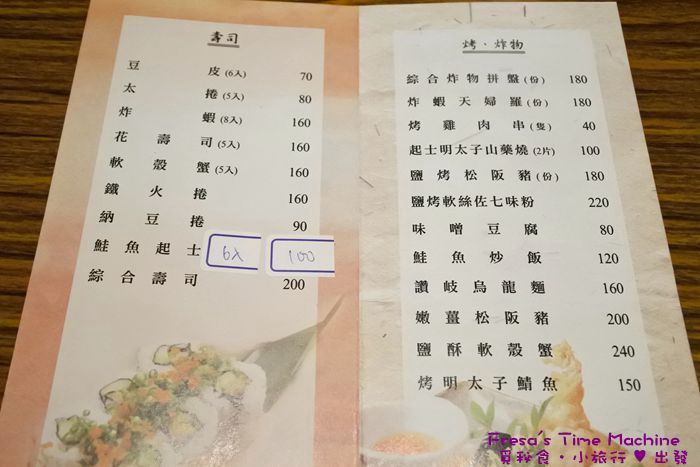 壽司
豆皮(6入) 70
太捲(5入) 80
炸蝦(8入) 160
花壽司(5入) 160
軟殼蟹(5入) 160
鐵火捲 160
納豆捲 90
鮭魚起士 6入 100
綜合壽司 200
烤·炸物
綜合炸物拼盤(份) 180
炸蝦天婦羅(份) 180
烤雞肉串(隻) 40
起士明太子山藥燒(2片) 100
鹽烤松阪豬(份) 180
鹽烤軟絲佐七味粉 220
味噌豆腐 80
鮭魚炒飯 120
讚岐烏龍麵 160
嫩薑松阪豬 200
鹽酥軟殼蟹 240
烤明太子鯖魚 150
Fresa's Time Machine
覓秋食·小旅行♥出發